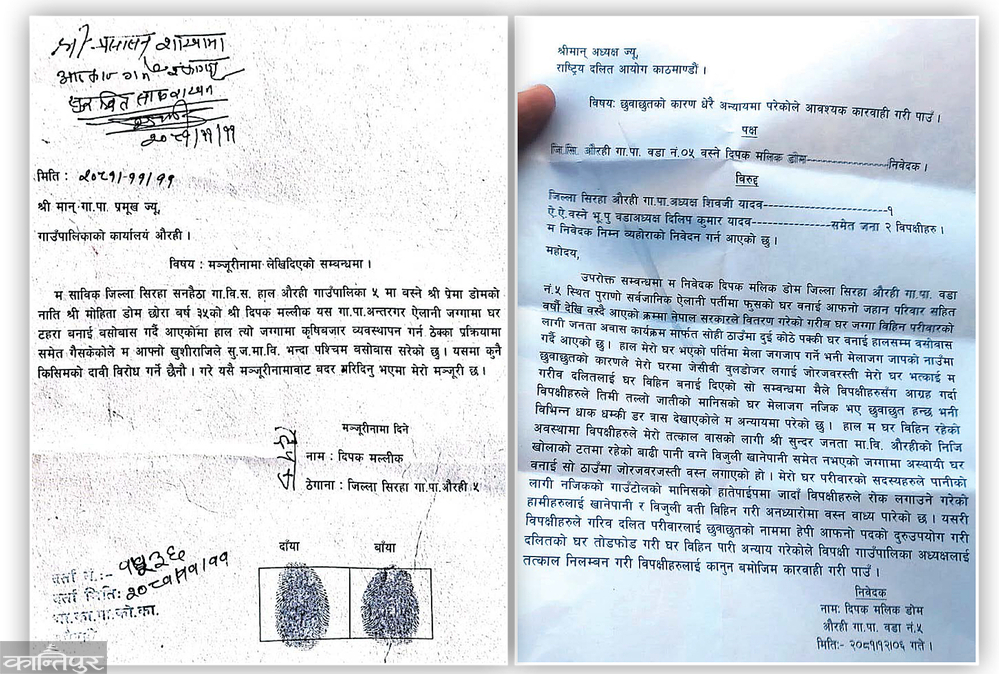 श्री प्रशासन शाखामा
२०८१/११/११
मिति : २०८१-११/११
श्री मान् गा.पा. प्रमुख ज्यू,
गाउँपालिकाको कार्यालयं औरही ।
विषय : मञ्जूरीनामा लेखिदिएको सम्बन्धमा ।
म साविक जिल्ला सिरहा सनहैठा गा.वि.स. हाल औरही गाउँपालिका ५ मा वस्ने श्री प्रेमा डोमको
नाति श्री मोहिता डोम छोरा वर्ष ३५को श्री दिपक मल्लीक यस गा.पा.अन्तरगर ऐलानी जग्गामा घर
टहरा बनाई वसोवास गर्दै आएकोमा हाल त्यो जग्गामा कृषिबजार व्यवस्थापन गर्न ठेक्का प्रक्रियामा
समेत गैसकेकोले म आफ्नो खुशीराजिले सु.ज.मा.वि. भन्दा पश्चिम वसोवास सरेको छु । यसमा कुनै
किसिमको दावी विरोध गर्ने छैनौ । गरे यसै मञ्जूरीनामावाट वदर गरिदिनु भएमा मेरो मञ्जूरी छ ।
मञ्जूरीनामा दिने
नाम : दिपक मल्लीक
ठेगाना : जिल्ला सिरहा गा.पा.औरही ५
दाँया बाँया
दर्ता मिति: २०८१/११/११
कान्तिपुर
श्रीमान् अध्यक्ष ज्यू,
राष्ट्रिय दलित आयोग काठमाण्डौं ।
विषय: छुवाछुतको कारण धेरै अन्यायमा परेकोले आवश्यक कारवाही गरी पाउँ ।
पक्ष
जि.सि. औरही गा.पा. वडा नं.०५ वस्ने दिपक मलिक डोम-----------------निवेदक ।
विरुद्द
जिल्ला सिरहा औरही गा.पा.अध्यक्ष शिवजी यादव--------------------------१
ऐ.ऐ.वस्ने भू.पु वडाअध्यक्ष दिलिप कुमार यादव---------------समेत जना २ विपक्षीहरु ।
म निवेदक निम्न व्यहोराको निवेदन गर्न आएको छु ।
महोदय,
उपरोक्त सम्बन्धमा म निवेदक दिपक मलिक डोम जिल्ला सिरहा औरही गा.पा. वडा
नं.५ स्थित पुराणो सर्वजानिक ऐलानी पर्तीमा फुसको घर बनाई आफनो जहान परिवार सहित
वर्षौ देखि वस्दै आएको क्रममा नेपाल सरकारले वितरण गरेको गरीव घर जग्गा विहिन परीवारको
लागी जनता अवास कार्यक्रम मार्फत सोही ठाउँमा दुई कोठे पक्की घर बनाई हालसम्म वसोवास
गर्दै आएको छु । हाल मेरो घर भएको पर्तिमा मेला जगजाप गर्ने भनी मेलाजग जापको नाउँमा
छुवाछुतको कारणले मेरो घरमा जेसीवी बुलडोजर लगाई जोरजवरस्ती मेरो घर भत्काई म
गरीव दलितलाई घर विहिन बनाई दिएको सो सम्बन्धमा मैले विपक्षीहरुसँग आग्रह गर्दा
विपक्षीहरुले तिमी तल्लो जातीको मानिसको घर मेलाजग नजिक भए छुवाछुत हन्छ भनी
विभिन्न धाक धम्की डर त्रास देखाएकोले म अन्यायमा परेको छु । हाल म घर विहिन रहेको
अवस्थामा विपक्षीहरुले मेरो तत्काल वासको लागी श्री सुन्दर जनता मा.वि. औरहीको निजि
खोलाको टटमा रहेको बाढी पानी वग्ने विजुली खानेपानी समेत नभएको जग्गामा अस्थायी घर
बनाई सो ठाउँमा जोरजवरजस्ती वस्न लगाएको हो । मेरो घर परीवारको सदस्यहरुले पानीको
लागी नजिकको गाउँटोलको मानिसको हातेपाईपमा जादाँ विपक्षीहरुले रोक लगाउने गरेको
हामीहरुलाई खानेपानी र विजुली बती विहिन गरी अनध्यारोमा वस्न वाध्य पारेको छ । यसरी
विपक्षीहरुले गरिव दलित परीवारलाई छुवाछुतको नाममा हेपी आफनो पदको दुरुउपयोग गरी
दलितको घर तोडफोड गरी घर विहिन पारी अन्याय गरेकोले विपक्षी गाउँपालिका अध्यक्षलाई
तत्काल निलम्बन गरी विपक्षीहरुलाई कानुन बमोजिम कारवाही गरी पाउँ ।
निवेदक
नाम: दिपक मलिक डोम
औरही गा.पा. वडा नं.५
मिति:- २०८१।१२।०६ गते ।